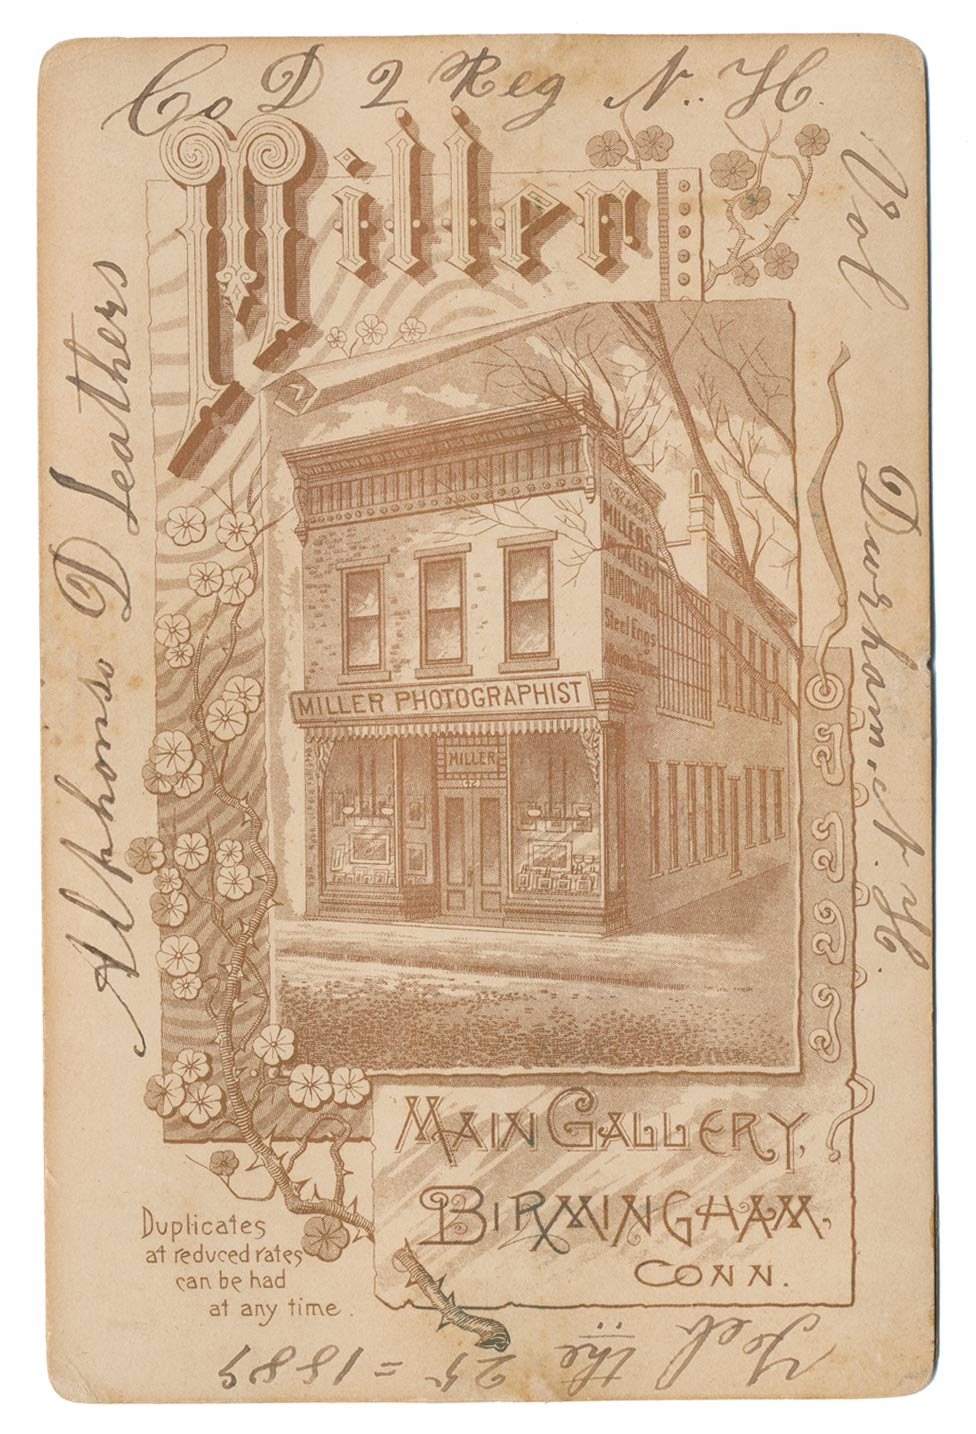 Co D 2 Reg N. H.
Vol
Durham, ct. H.
Feb the 25 = 1889
Alphonso D Leathers
Miller
MILLERS
PHOTOGRAPH
Steel Engs
MILLER PHOTOGRAPHIST
MILLER
MAIN GALLERY,
BIRMINGHAM,
CONN.
Duplicates
at reduced rates
can be had
at any time.